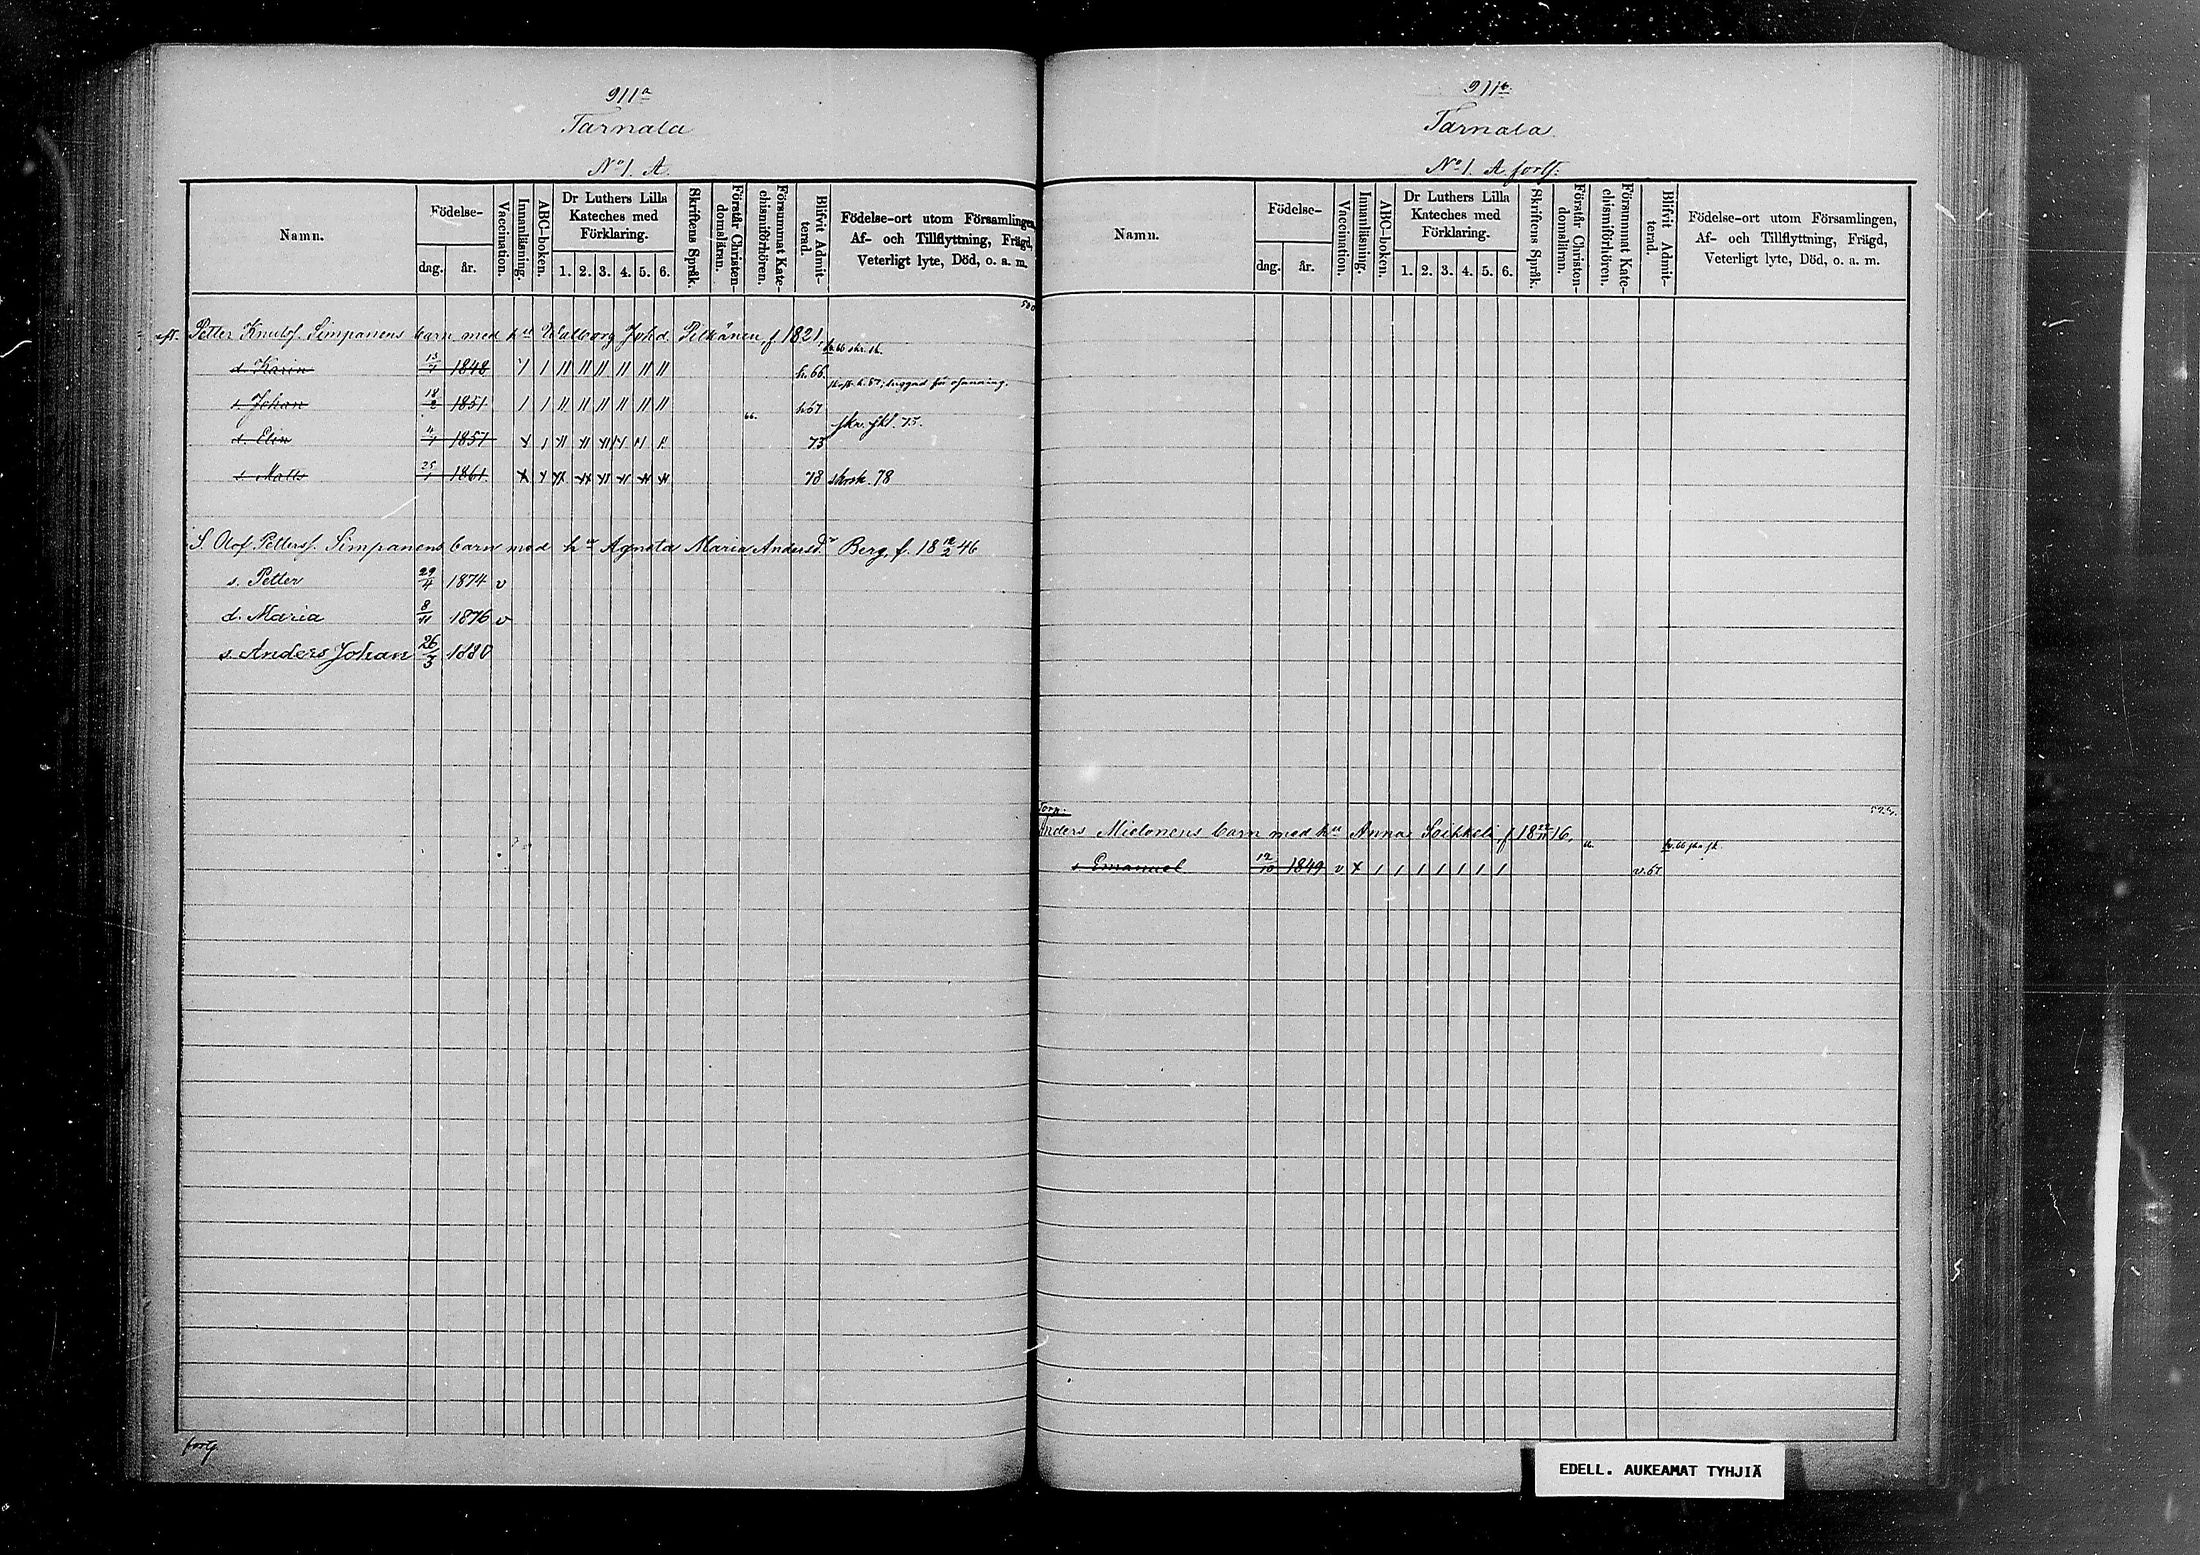 911a
Tarnala
No 1. A.
Namn.
Födelse-
dag. år.
Vaccination.
Innanläsning.
ABC-boken.
Dr Luthers Lilla Kateches med Förklaring.
1. 2. 3. 4. 5. 6.
Skriftens Språk.
Förstår Christendomsläran.
Försummat Katechismiförhören.
Blifvit Admitterad.
Födelse-ort utom Församlingen,
Af- och Tillflyttning, Frägd,
Veterligt lyte, Död, o. a. m.
Petter Knutsf. Simpanens barn med hu Walborg Joh.d. Pelkänen, f 1821,
d. Karin 13/7 1848 h. 66.
s. Johan 18/2 1851 66. h 67
s. Elin 4/4 1857 73
s. Matts 25/1 1861 78 78
S. Olof Pettersf. Simpanens barn med hu Agneta Maria Andersd.r Berg, f. 18 12/2 46
s. Petter 29/4 1874 v
d. Maria 8/11 1876 v
s. Anders Johan 26/3 1880
fortf.
911b.
Tarnala
No 1. A fortf:
Namn.
Födelse-
dag. år.
Vaccination.
Innanläsning.
ABC-boken.
Dr Luthers Lilla Kateches med Förklaring.
1. 2. 3. 4. 5. 6.
Skriftens Språk.
Förstår Christendomsläran.
Försummat Katechismiförhören.
Blifvit Admitterad.
Födelse-ort utom Församlingen,
Af- och Tillflyttning, Frägd,
Veterligt lyte, Död, o. a. m.
Torp.
Anders Mielonens barn med hu Anna Soikkeli, f
s. Emanuel 12/10 1849 v
EDELL. AUKEAMAT TYHJIÄ